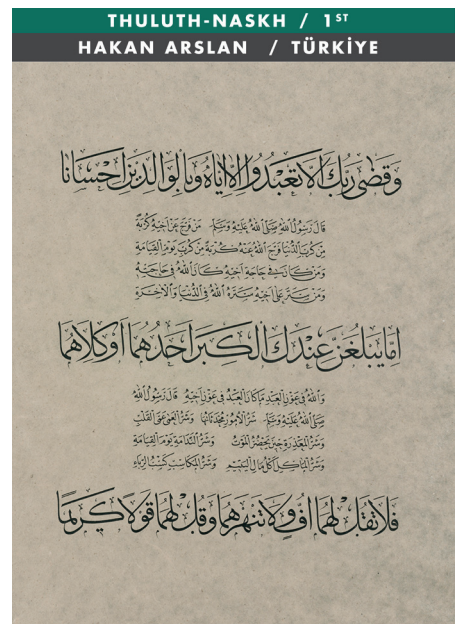 THULUTH-NASKH / 1ST
HAKAN ARSLAN / TÜRKİYE
وَقَضَى رَبُّكَ اَلَّا تَعْبُدُوا اِلَّا اِيَّاهُ وَبِالْوَالِدَيْنِ اِحْسَانًا
قَالَ رَسُولُ اللهِ صَلَّى اللهُ عَلَيْهِ وَسَلَّمَ مَنْ فَرَّجَ عَنْ اَخِيهِ كُرْبَةً
مِنْ كُرَبِ الدُّنْيَا فَرَّجَ اللهُ عَنْهُ كُرْبَةً مِنْ كُرَبِ يَوْمِ الْقِيَامَةِ
وَمَنْ كَانَ فِي حَاجَةِ اَخِيهِ كَانَ اللهُ فِي حَاجَتِهِ
وَمَنْ سَتَرَ عَلَى اَخِيهِ سَتَرَهُ اللهُ فِي الدُّنْيَا وَالْاٰخِرَةِ
اِمَّا يَبْلُغَنَّ عِنْدَكَ الْكِبَرَ اَحَدُهُمَا اَوْ كِلَاهُمَا
وَاللهُ فِي عَوْنِ الْعَبْدِ مَا كَانَ الْعَبْدُ فِي عَوْنِ اَخِيهِ قَالَ رَسُولُ اللهِ
صَلَّى اللهُ عَلَيْهِ وَسَلَّمَ شَرُّ الْاُمُورِ مُحْدَثَاتُهَا وَشَرُّ الْعَمَى عَمَى الْقَلْبِ
وَشَرُّ الْمَعْذِرَةِ حِينَ يَحْضُرُ الْمَوْتُ وَشَرُّ النَّدَامَةِ يَوْمَ الْقِيَامَةِ
وَشَرُّ الْمَاٰكِلِ اَكْلُ مَالِ الْيَتِيمِ وَشَرُّ الْمَكَاسِبِ كَسْبُ الرِّبَا
فَلَا تَقُلْ لَهُمَا اُفٍّ وَلَا تَنْهَرْهُمَا وَقُلْ لَهُمَا قَوْلًا كَرِيمًا